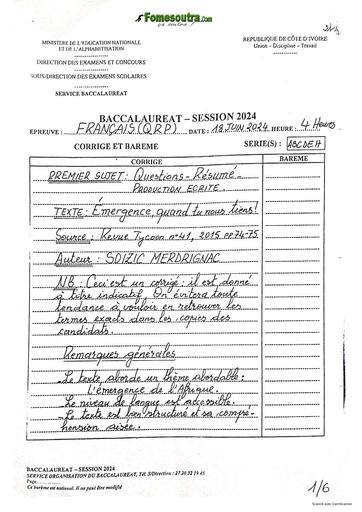 Fomesoutra.com
ça soutra !
MINISTERE DE L'EDUCATION NATIONALE
ET DE L'ALPHABETISATION
DIRECTION DES EXAMENS ET CONCOURS
SOUS-DIRECTION DES EXAMENS SCOLAIRES
SERVICE BACCALAUREAT
REPUBLIQUE DE CÔTE D'IVOIRE
Union – Discipline – Travail
BACCALAUREAT – SESSION 2024
EPREUVE : FRANÇAIS (QRP) DATE : 18 JUIN 2024 HEURE : 4 Heures
CORRIGE ET BAREME SERIE(S) : ABCDEH
CORRIGE BAREME
PREMIER SUJET : Questions - Résumé -
PRODUCTION ECRITE.
TEXTE : Émergence, quand tu nous tiens !
Source : Revue Tycoon n°41, 2015 pp.74-75.
Auteur : SOIZIC MERDRIGNAC
NB : Ceci est un corrigé ; il est donné
à titre indicatif. On évitera toute
tendance à vouloir en retrouver les
termes exacts dans les copies des
candidats.
Remarques générales
- Le texte aborde un thème abordable :
l'émergence de l'Afrique.
- Le niveau de langue est accessible.
- Le texte est bien structuré et sa compré-
hension aisée.
BACCALAUREAT – SESSION 2024
SERVICE ORGANISATION DU BACCALAUREAT, Tél. S/Direction : 27 20 32 19 45
Page
Ce barème est national. Il ne peut être modifié
1/6
Scanné avec CamScanner